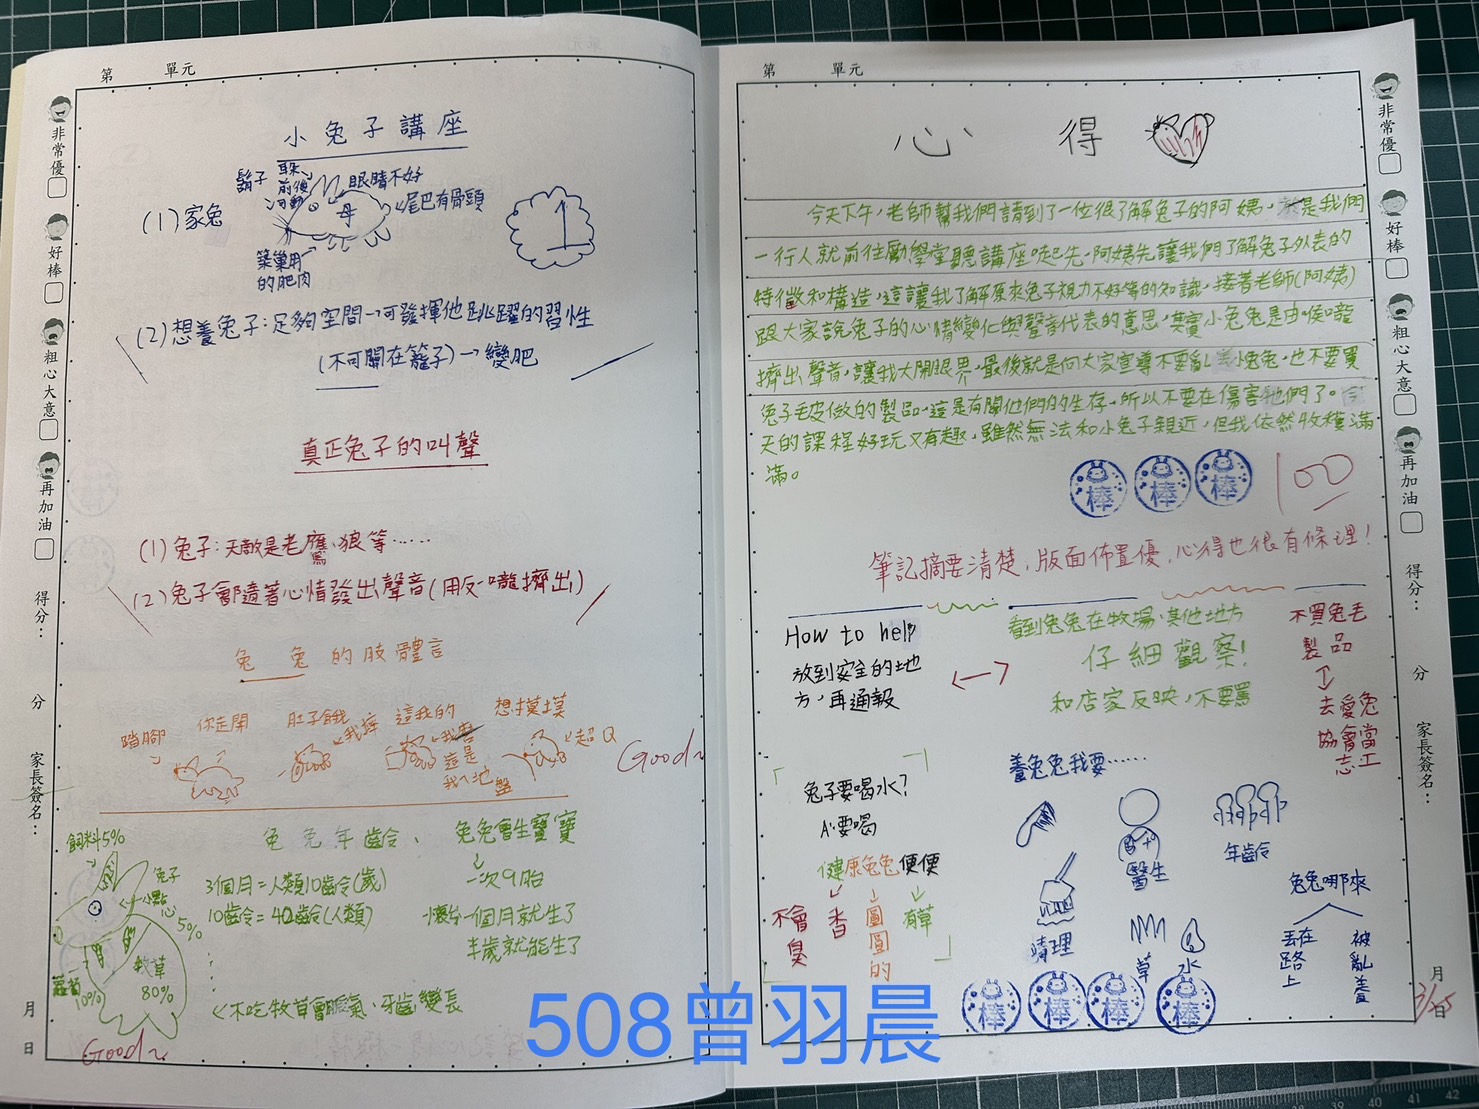 第 單元
非常優
好棒
粗心大意
再加油
得分：
分
家長簽名：
月
日
小兔子講座
鬍子
耳朵
前後
可動
眼睛不好
(1)家兔
母
尾巴有骨頭
築巢用
的肥肉
(2)想養兔子：足夠空間→可發揮他跳躍的習性
(不可關在籠子)→變肥
真正兔子的叫聲
(1)兔子：天敵是老鷹、狼等……
(2)兔子會隨著心情發出聲音(用喉嚨擠出)
兔兔的肢體言
踏腳
你走開
肚子餓
我癢
這我的
我的
這是
我ㄟ地盤
想摸摸
超Q
Good~
飼料5%
兔子
小點心
5%
蘿蔔
10%
牧草
80%
兔兔年齡、兔兔會生寶寶
3個月=人類10齡(歲)
一次9胎
10齡=40齡(人類)
懷孕一個月就生了
半歲就能生了
不吃牧草會脹氣、牙齒變長
Good~
第 單元
心得
今天下午，老師幫我們請到了一位很了解兔子的阿姨，於是我們
一行人就前往勵學堂聽講座。起先，阿姨先讓我們了解兔子外表的
特徵和構造，這讓我了解原來兔子視力不好等的知識，接著老師(阿姨)
跟大家說兔子的心情變化與聲音代表的意思，其實小兔兔是由喉嚨
擠出聲音，讓我大開眼界，最後就是向大家宣導不要亂養小兔兔，也不要買
兔子毛皮做的製品，這是有關他們的生存，所以不要在傷害牠們了。今
天的課程好玩又有趣，雖然無法和小兔子親近，但我依然收穫滿
滿。
棒 棒 棒
100
筆記摘要清楚，版面佈置優，心得也很有條理！
How to help
放到安全的地
方，再通報
看到兔兔在牧場、其他地方
仔細觀察！
和店家反映，不要罵
不買兔毛
製品
去愛兔
協會當
志工
兔子要喝水？
A:要喝
健康兔兔便便
不會臭
香
圓圓的
有草
養兔兔我要……
醫生
年齡
清理
草
水
兔兔哪來
丟在路上
被亂養
棒 棒 棒 棒
非常優
好棒
粗心大意
再加油
得分：
分
家長簽名：
月
日
508曾羽晨